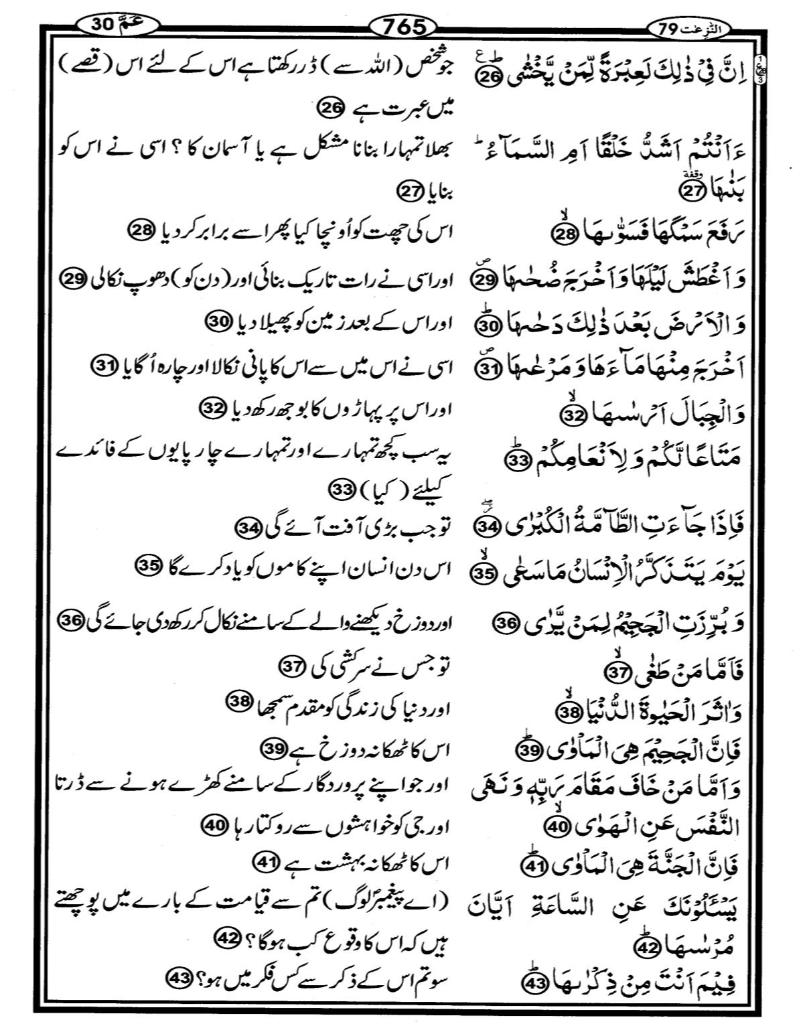 النّٰزعٰت 79
765
عَمَّ 30
اِنَّ فِیْ ذٰلِكَ لَعِبْرَةً لِّمَنْ یَّخْشٰى ؕ 26 ع
جو شخص (اللہ سے) ڈر رکھتا ہے اس کے لئے اس (قصے)
میں عبرت ہے 26
ءَاَنْتُمْ اَشَدُّ خَلْقًا اَمِ السَّمَآءُ ؕ
بھلا تمہارا بنانا مشکل ہے یا آسمان کا ؟ اسی نے اس کو
بَنٰىهَا 27 وقفة
بنایا 27
رَفَعَ سَمْكَهَا فَسَوّٰىهَا ۙ 28
اس کی چھت کو اُونچا کیا پھر اسے برابر کر دیا 28
وَ اَغْطَشَ لَیْلَهَا وَ اَخْرَجَ ضُحٰىهَا ۪ 29
اور اسی نے رات تاریک بنائی اور (دن کو) دھوپ نکالی 29
وَ الْاَرْضَ بَعْدَ ذٰلِكَ دَحٰىهَا ؕ 30
اور اس کے بعد زمین کو پھیلا دیا 30
اَخْرَجَ مِنْهَا مَآءَهَا وَ مَرْعٰىهَا ۪ 31
اسی نے اس میں سے اس کا پانی نکالا اور چارہ اُگایا 31
وَ الْجِبَالَ اَرْسٰىهَا ۙ 32
اور اس پر پہاڑوں کا بوجھ رکھ دیا 32
مَتَاعًا لَّكُمْ وَ لِاَنْعَامِكُمْ ؕ 33
یہ سب کچھ تمہارے اور تمہارے چارپایوں کے فائدے
کیلئے (کیا) 33
فَاِذَا جَآءَتِ الطَّآمَّةُ الْكُبْرٰى ۖ 34
تو جب بڑی آفت آئے گی 34
یَوْمَ یَتَذَكَّرُ الْاِنْسَانُ مَا سَعٰى ۙ 35
اس دن انسان اپنے کاموں کو یاد کرے گا 35
وَ بُرِّزَتِ الْجَحِیْمُ لِمَنْ یَّرٰى 36
اور دوزخ دیکھنے والے کے سامنے نکال کر رکھ دی جائے گی 36
فَاَمَّا مَنْ طَغٰى ۙ 37
تو جس نے سرکشی کی 37
وَ اٰثَرَ الْحَیٰوةَ الدُّنْیَا ۙ 38
اور دنیا کی زندگی کو مقدم سمجھا 38
فَاِنَّ الْجَحِیْمَ هِیَ الْمَاْوٰى ؕ 39
اس کا ٹھکانہ دوزخ ہے 39
وَ اَمَّا مَنْ خَافَ مَقَامَ رَبِّهٖ وَ نَهَى
اور جو اپنے پروردگار کے سامنے کھڑے ہونے سے ڈرتا
النَّفْسَ عَنِ الْهَوٰى ۙ 40
اور جی کو خواہشوں سے روکتا رہا 40
فَاِنَّ الْجَنَّةَ هِیَ الْمَاْوٰى ؕ 41
اس کا ٹھکانہ بہشت ہے 41
یَسْـَٔلُوْنَكَ عَنِ السَّاعَةِ اَیَّانَ
(اے پیغمبرؐ لوگ) تم سے قیامت کے بارے میں پوچھتے
مُرْسٰىهَا ؕ 42
ہیں کہ اس کا وقوع کب ہوگا ؟ 42
فِیْمَ اَنْتَ مِنْ ذِكْرٰىهَا ؕ 43
سو تم اس کے ذکر سے کس فکر میں ہو ؟ 43